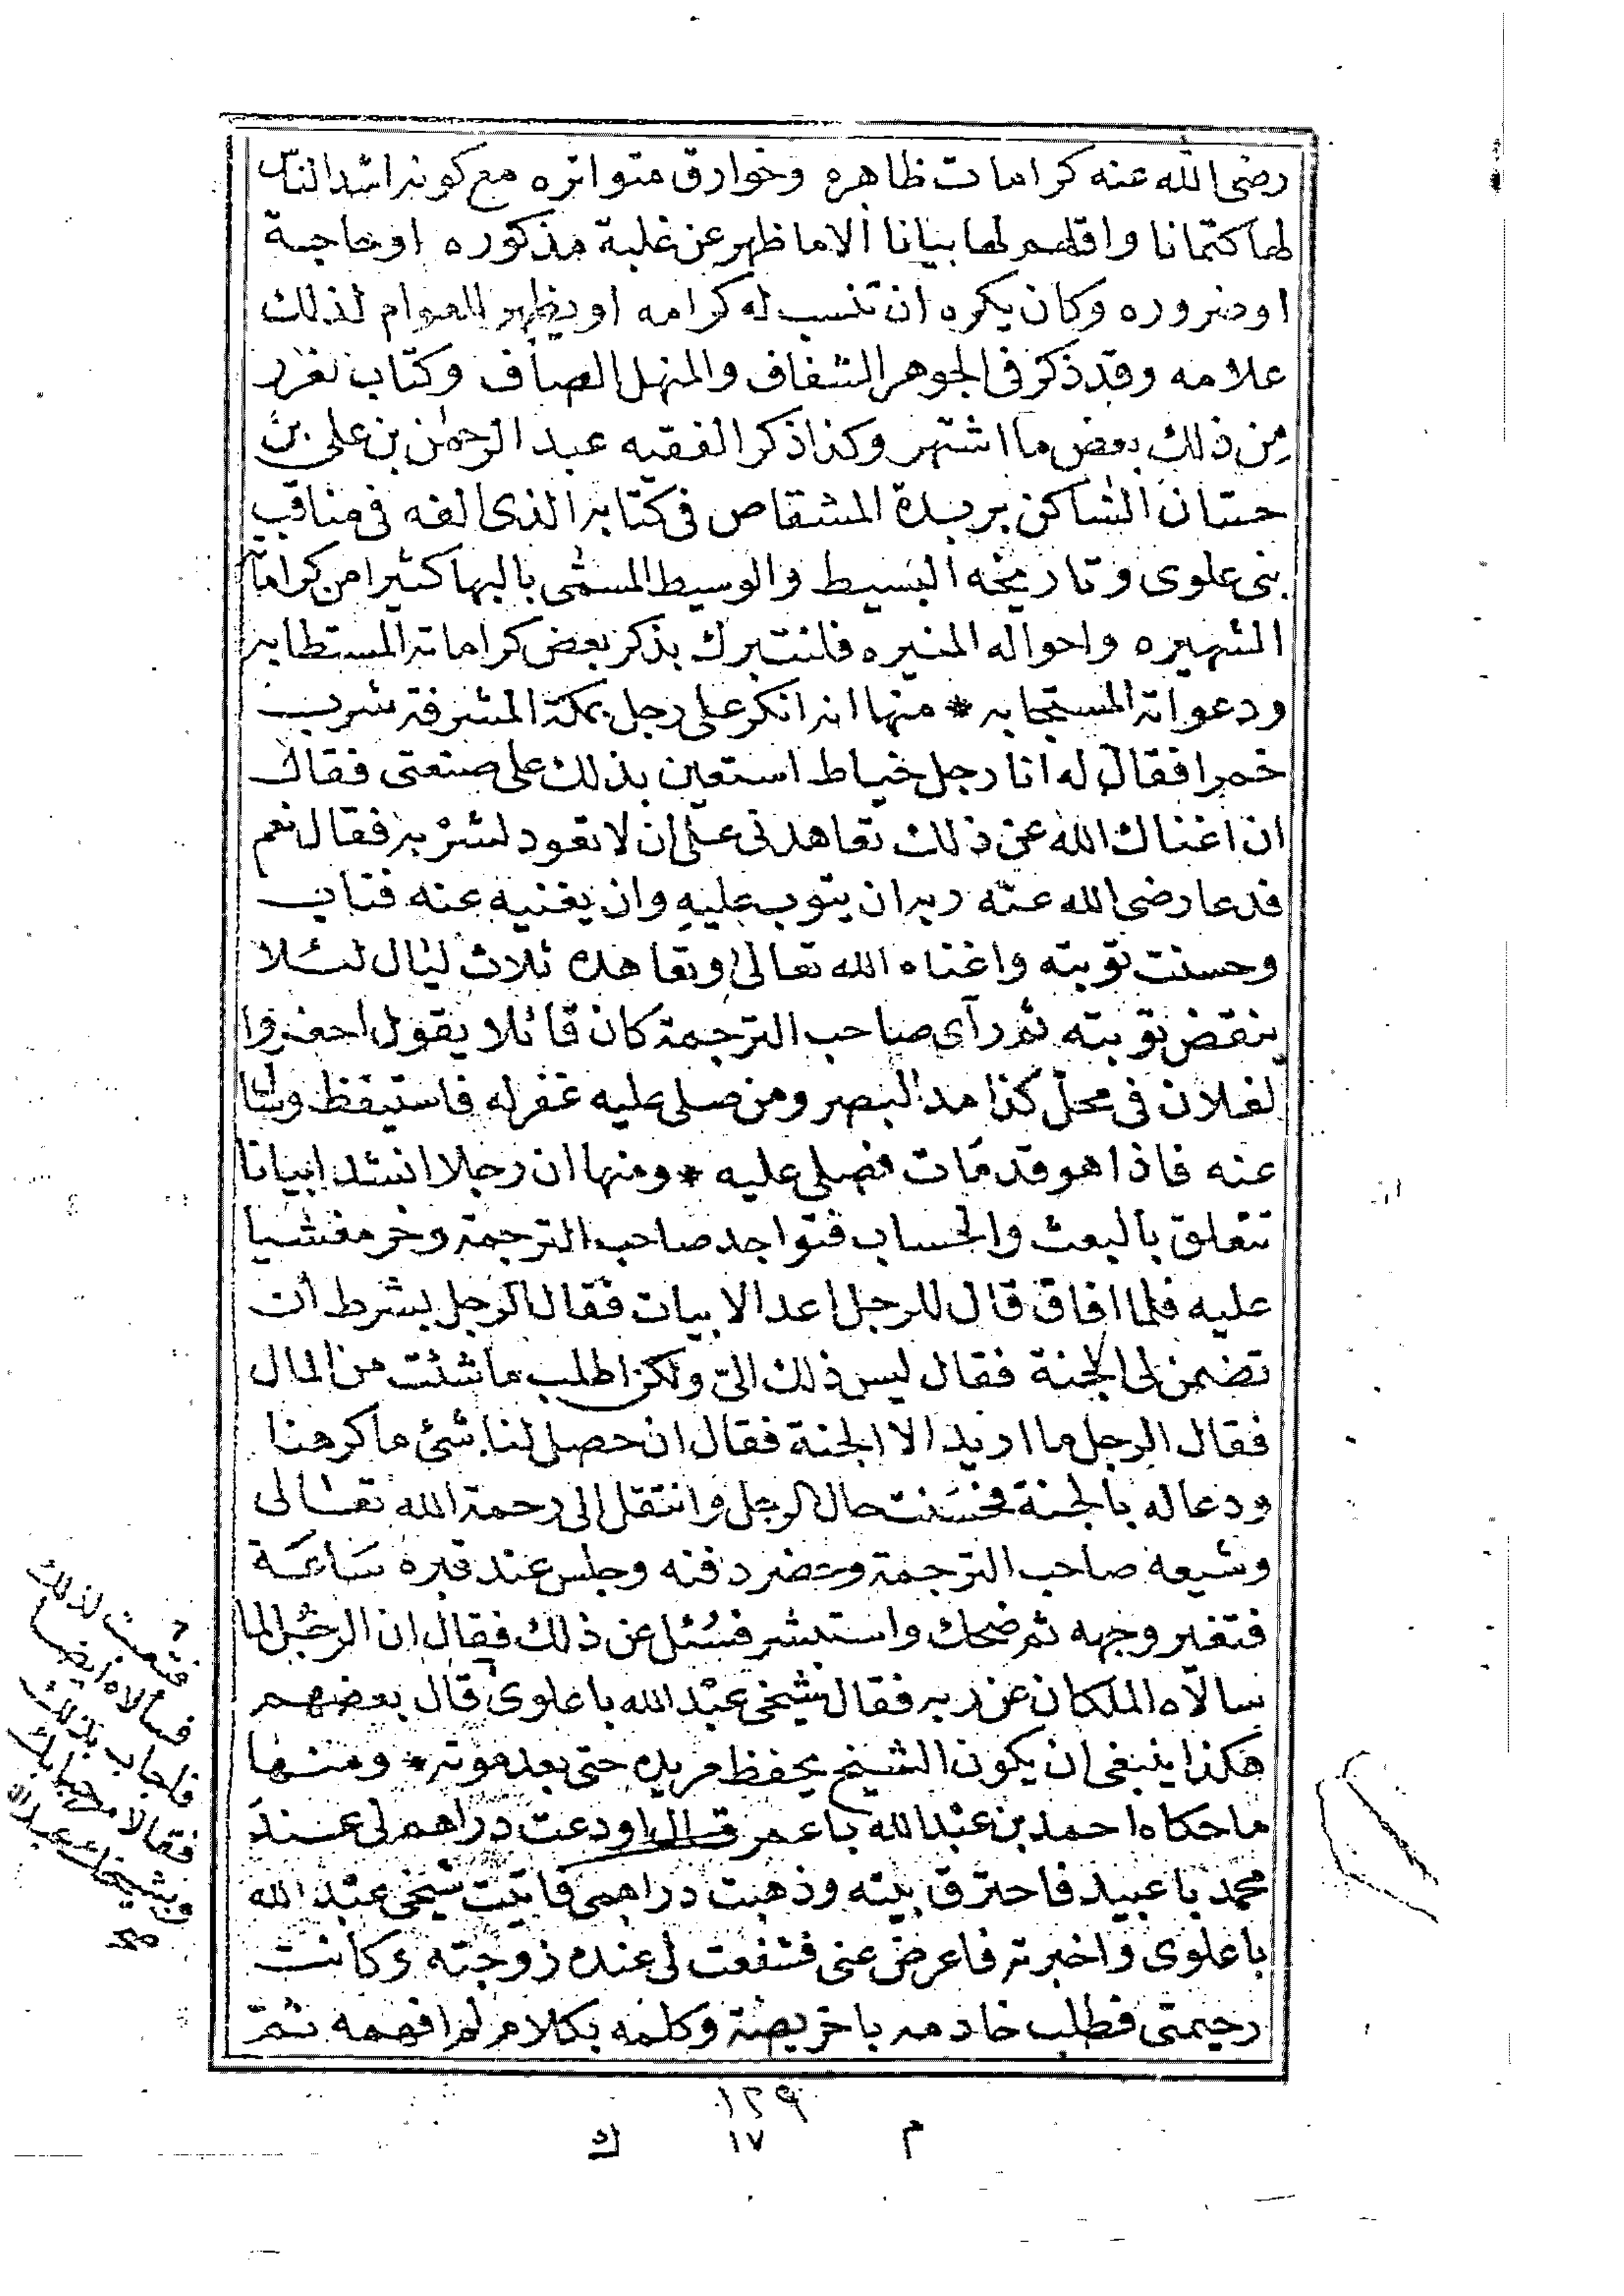 رضى الله عنه كرامات ظاهره وخوارق متواتره مع كونه اشد الناس
لها كتمانا واقلهم لها بيانا الا ما ظهر عن غلبة مذكوره او حاجة
او ضروره وكان يكره ان تنسب له كرامه او يظهر للعوام لذلك
علامه وقد ذكر فى الجوهر الشفاف والمنهل الصاف وكتاب غرر
من ذلك بعض ما اشتهر وكذا ذكر الفقيه عبد الرحمن بن على بن
حسان الساكن بريدة المشقاص فى كتابه الذى الفه فى مناقب
بنى علوى وتاريخه البسيط والوسيط المسمى بالبها كثيرا من كراماته
الشهيره واحواله المنيره فلنتبرك بذكر بعض كراماته المستطابه
ودعواته المستجابه * منها انه انكر على رجل بمكة المشرفة شرب
خمرا فقال له انا رجل خياط استعين بذلك على صنعتى فقال
ان اغناك الله عن ذلك تعاهدنى على ان لا تعود لشربه فقال نعم
فدعا رضى الله عنه ربه ان يتوب عليه وان يغنيه عنه فتاب
وحسنت توبته واغناه الله تعالى وتعاهده ثلاث ليال لئلا
ينقض توبته ثم رآى صاحب الترجمة كان قائلا يقول احضروا
لفلان فى محل كذا مد البصر ومن صلى عليه غفر له فاستيقظ وسال
عنه فاذا هو قد مات فصلى عليه * ومنها ان رجلا انشد ابياتا
تتعلق بالبعث والحساب فتواجد صاحب الترجمة وخر مغشيا
عليه فلما افاق قال للرجل اعد الابيات فقال الرجل بشرط ان
تضمن لى الجنة فقال ليس ذلك الىّ ولكن اطلب ما شئت من المال
فقال الرجل ما اريد الا الجنة فقال ان حصل لنا شئ ما كرهنا
ودعا له بالجنة فحسنت حال الرجل وانتقل الى رحمة الله تعالى
وشيعه صاحب الترجمة وحضر دفنه وجلس عند قبره ساعة
فتغير وجهه ثم ضحك واستبشر فسئل عن ذلك فقال ان الرجل لما
سالاه الملكان عن ربه فقال شيخى عبد الله باعلوى قال بعضهم
هكذا ينبغى ان يكون الشيخ يحفظ مريده حتى بعد موته * ومنها
ما حكاه احمد بن عبد الله باعمر قال اودعت دراهم لى عند
محمد باعبيد فاحترق بيته وذهبت دراهمى فاتيت شيخى عبد الله
باعلوى واخبرته فاعرض عنى فشفعت لى عنده زوجته وكانت
رحيمتى فطلب خادمه باخريصة وكلمه بكلام لم افهمه ثم
فتعبت لذلك
فسألاه ايضا
فاجاب بذلك
فقالا مرحبا بك
وبشيخك عبد الله
صح
١٢٩
م ١٧ ك